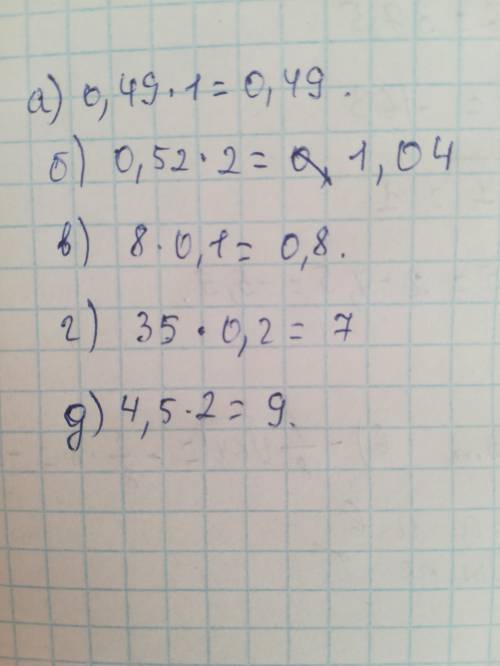 а) 0,49·1=0,49.
б) 0,52·2= 1,04
в) 8·0,1= 0,8.
г) 35·0,2= 7
д) 4,5·2= 9.